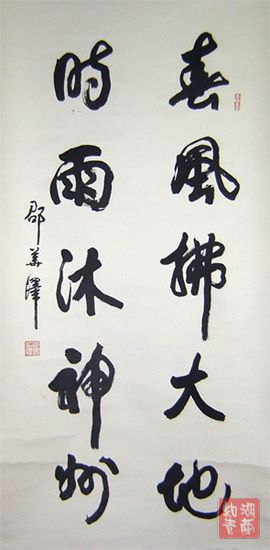 春風拂大地
時雨沐神州
邵華澤
湖南